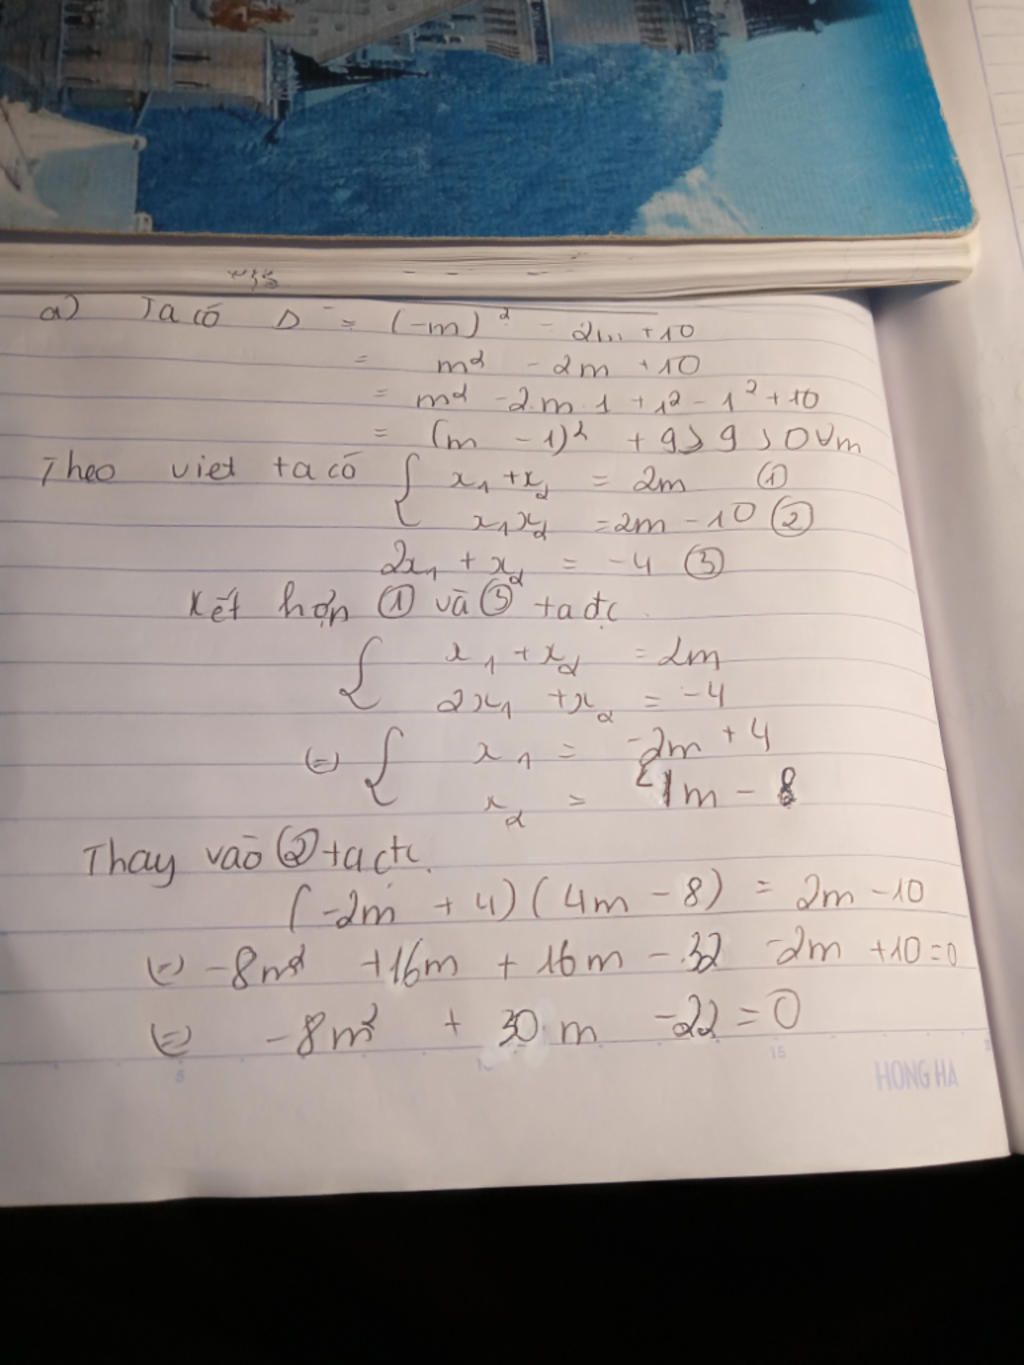 a) Ta có Δ' = (-m)² - 2m + 10
= m² - 2m + 10
= m² - 2.m.1 + 1² - 1² + 10
= (m - 1)² + 9 ≥ 9 > 0 ∀m
Theo viet ta có { x₁ + x₂ = 2m ①
x₁x₂ = 2m - 10 ②
2x₁ + x₂ = -4 ③
Kết hợp ① và ③ ta đc
{ x₁ + x₂ = 2m
2x₁ + x₂ = -4
(=) { x₁ = -2m + 4
x₂ = 4m - 8
Thay vào ② ta đc
(-2m + 4)(4m - 8) = 2m - 10
(=) -8m² + 16m + 16m - 32 - 2m + 10 = 0
(=) -8m² + 30m - 22 = 0
5 15
HONG HA